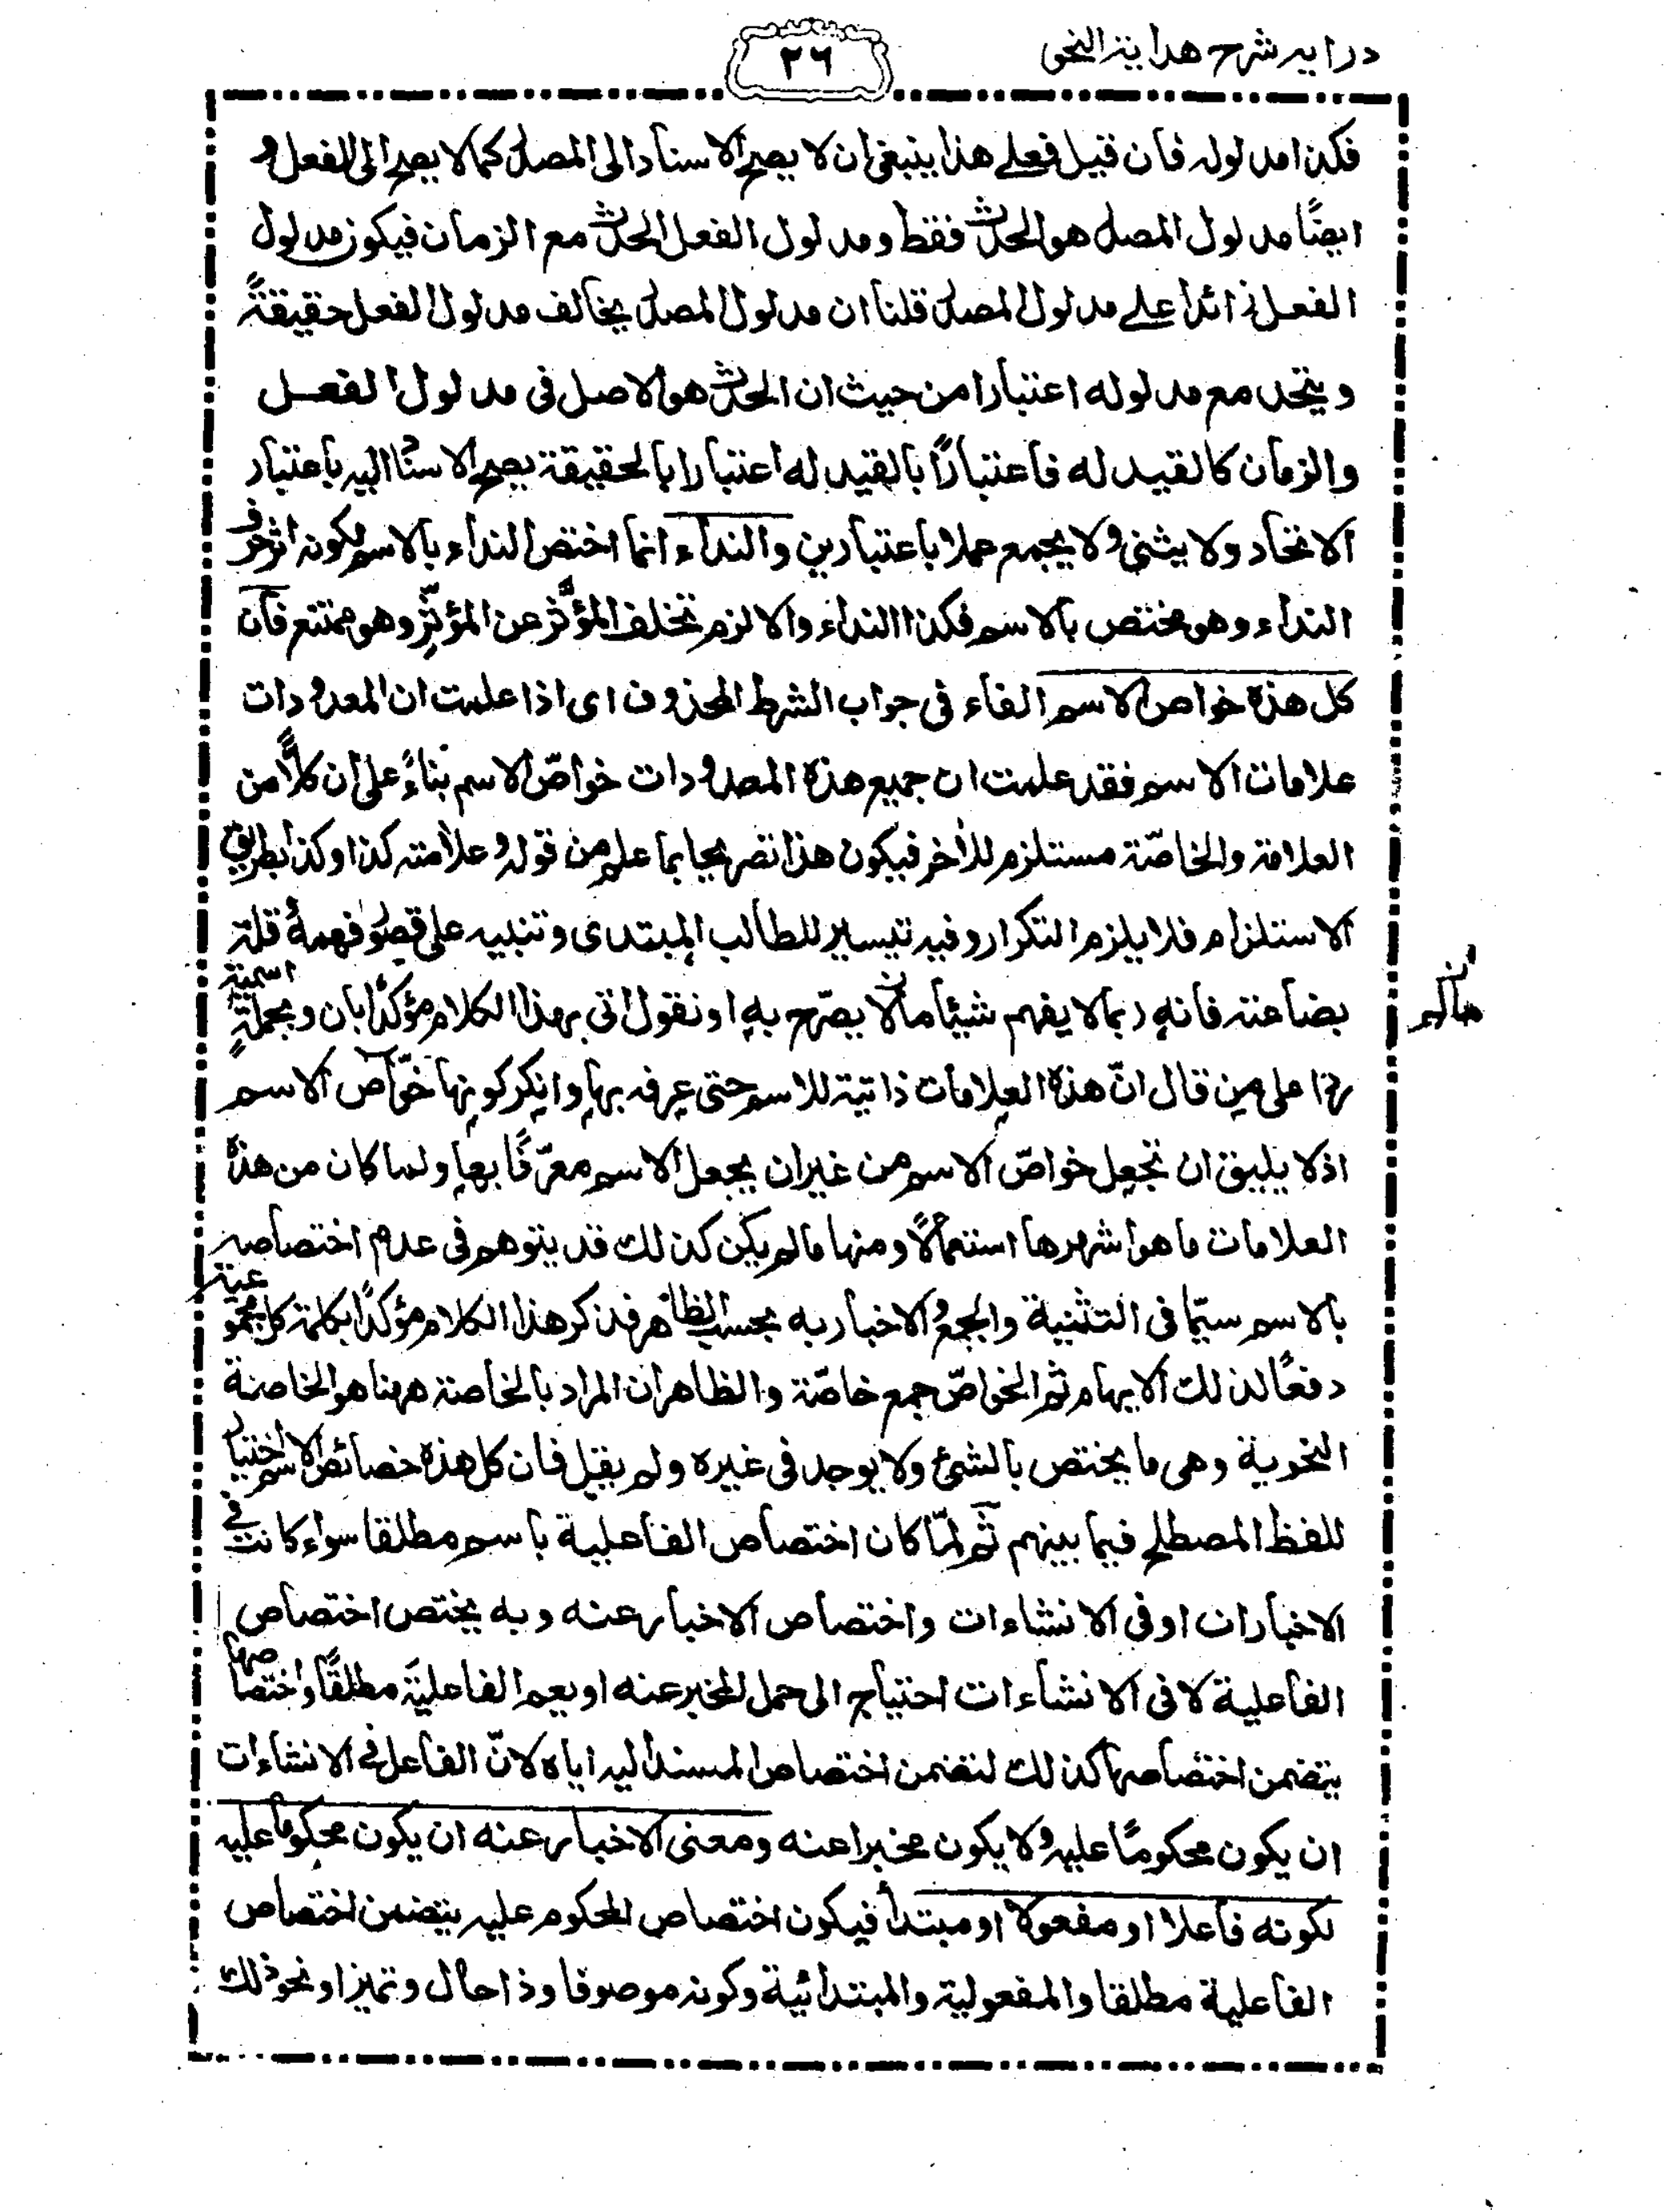 درایہ شرح هدایۃ النحو
٢٦
فکذا مدلولہ فان قیل فعلے هذا ینبغی ان لا یصح الاسناد الی المصدر کما لا یصح الی الفعل و
ایضًا مدلول المصدر هو الحدث فقط ومدلول الفعل الحدث مع الزمان فیکون مدلول
الفعل زائدا علے مدلول المصدر قلنا ان مدلول المصدر یخالف مدلول الفعل حقیقۃً
ویتحد مع مدلوله اعتبارا من حیث ان الحدث هو الاصل فی مدلول الفعل
والزمان کالقید له فاعتبارًا بالقید له اعتبارا بالحقیقة یصح الاسناد الیہ باعتبار
الاتحاد ولا یثنی ولا یجمع عملا باعتبارین والنداء انما اختص النداء بالاسم لکونہ اثر حرف
النداء وهو مختص بالاسم فکذا النداء والا لزم تخلف المؤثَّر عن المؤثِّر وهو ممتنع فان
کل هذه خواص الاسم الفاء فی جواب الشرط المحذوف ای اذا علمت ان المعدودات
علامات الاسم فقد علمت ان جمیع هذه المعدودات خواصّ الاسم بناءً علی ان کلًّا من
العلامۃ والخاصّۃ مستلزم للآخر فیکون هذا تصریحا بما علم من قولہ وعلامتہ کذا وکذا بطریق
الاستلزام فلا یلزم التکرار وفیہ تیسیر للطالب المبتدی وتنبیہ علی قصور فهمهٖ وقلۃ
بضاعتہ فانہ ربما لا یفهم شیئا مالا یصرّح بہٖ او نقول اتی بهذا الکلام مؤکدًا بان وبجملۃٍ اسمیۃ
ردا علی من قال انّ هذه العلامات ذاتیة للاسم حتی عرفہ بها وانکر کونها خواصّ الاسم
اذ لا یلیق ان تجعل خواصّ الاسم من غیر ان یجعل الاسم معرّفًا بها ولما کان من هذه
العلامات ما هو اشهرها استعمالًا ومنها ما لم یکن کذلك قد یتوهم فی عدم اختصاصہ
بالاسم سیّما فی التثنیة والجمع والاخبار به بحسب الظاهر فذکر هذا الکلام مؤکدًا بکلمۃ کل مجموعیۃ
دفعًا لذلك الایهام ثم الخواصّ جمع خاصّة والظاهر ان المراد بالخاصۃ ههنا هو الخاصة
النحویة وهی ما یختص بالشئ ولا یوجد فی غیره ولم یقل فان کل هذه خصائص الاسم اختیارا
للفظ المصطلح فیما بینهم ثم لمّا کان اختصاص الفاعلیة باسم مطلقا سواء کانت فی
الاخبارات او فی الانشاءات واختصاص الاخبار عنه وبه یختص اختصاص
الفاعلیة لا فی الانشاءات احتیاج الی حمل المخبر عنه او یعم الفاعلیۃ مطلقًا واختصاصها
یتضمن اختصاصها کذلك لتضمن اختصاص المسند الیہ ایاه لانّ الفاعل فی الانشاءات
ان یکون محکومًا علیہ ولا یکون مخبرا عنه ومعنی الاخبار عنه ان یکون محکوما علیہ
لکونه فاعلا او مفعولا او مبتدأ فیکون اختصاص المحکوم علیہ یتضمن اختصاص
الفاعلیة مطلقا والمفعولیۃ والمبتدائیة وکونہ موصوفا وذا حال وتمیزا ونحو ذلك